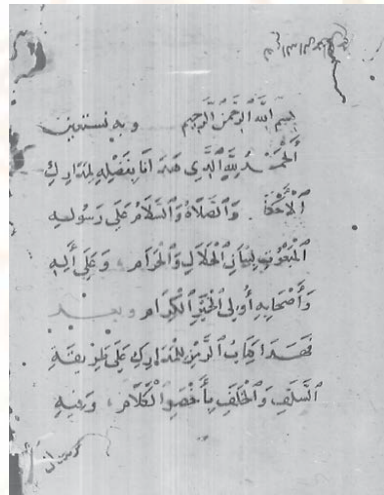 بسم اللَّه الرَّحمنُ الرَّحِيم وبه نستعين
اَلْحَمْدُ لِلَّهِ الَّذِي هَدَانَا بِفَضْلِهِ لِمَدَارِكِ
الْأَحْكَامِ . وَالصَّلَاةُ وَالسَّلَامُ عَلَى رَسُولِهِ
الْمَبْعُوثِ لِبَيَانِ الْحَلَالِ وَالْحَرَامِ، وَعَلَى أٰلِهِ
وَأَصْحَابِهِ أُولِى الْخَيْرِ الْكِرَامِ وبعد
فهذا كِتَابُ الرَّمْزِ لِلْمَدَارِكِ عَلَى طَرِيقَةِ
السَّلَفِ وَالْخَلَفِ بِأَخْصَرِ الْكَلَامِ، وَ